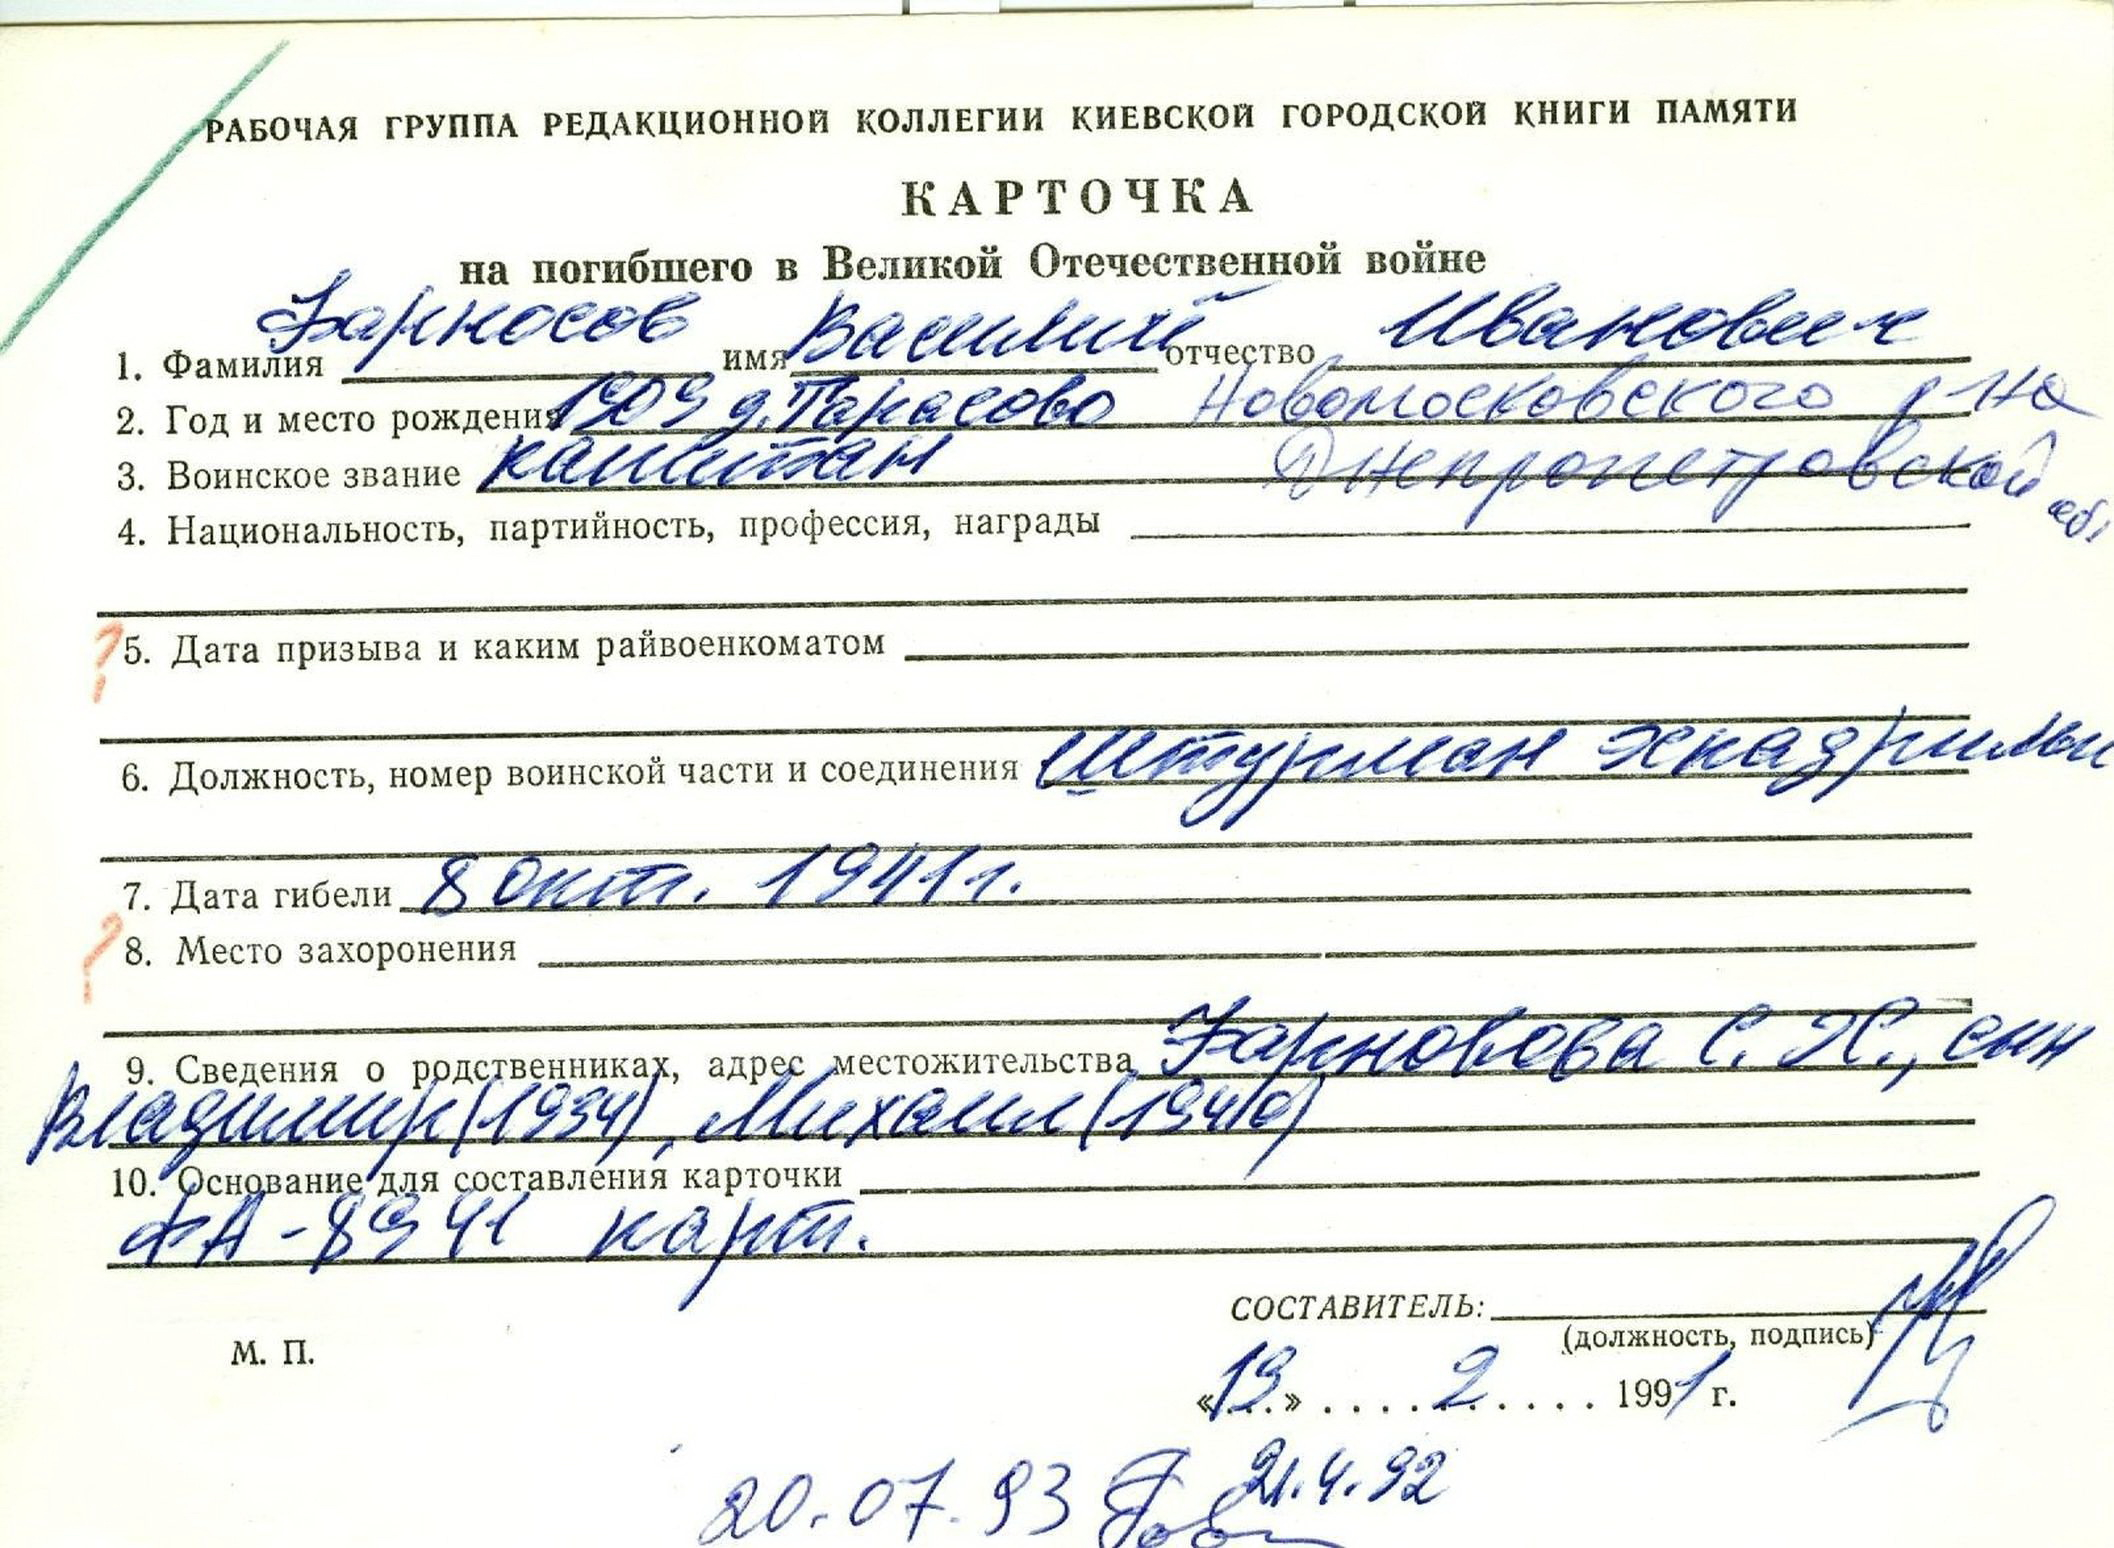 РАБОЧАЯ ГРУППА РЕДАКЦИОННОЙ КОЛЛЕГИИ КИЕВСКОЙ ГОРОДСКОЙ КНИГИ ПАМЯТИ
КАРТОЧКА
на погибшего в Великой Отечественной войне
1. Фамилия Фарносов имя Василий отчество Иванович
2. Год и место рождения 1909 д. Тарасово Новомосковского р-на
3. Воинское звание капитан Днепропетровской обл
4. Национальность, партийность, профессия, награды
? 5. Дата призыва и каким райвоенкоматом
6. Должность, номер воинской части и соединения Штурман эскадрильи
7. Дата гибели 8 окт. 1941 г.
? 8. Место захоронения
9. Сведения о родственниках, адрес местожительства С. Х., сын
Владимир (1934), Михаил (1940)
10. Основание для составления карточки
ФА-8941 карт.
СОСТАВИТЕЛЬ:
(должность, подпись)
М. П.
«19» 2 1991 г.
21.4.92
20.07.93